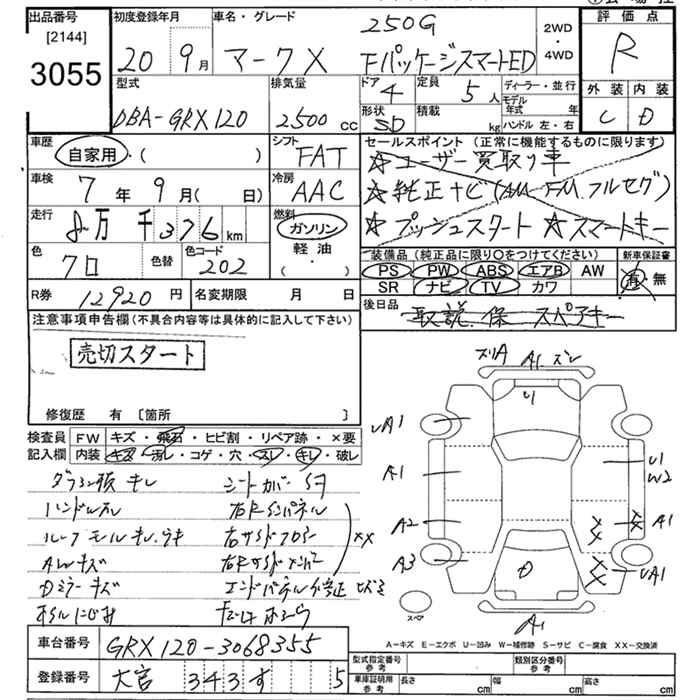 出品番号
[2144]
3055
初度登録年月
20 9月
車名・グレード
マークX
250G
Fパッケージスマートed
2WD
・
4WD
評価点
R
外装 内装
C D
型式
DBA-GRX120
排気量
2500 cc
ドア
4
定員
5人
形状
SD
積載
kg
ディーラー・並行
モデル
年式 年
ハンドル 左・右
車歴
自家用・( )
シフト
FAT
車検
7年9月( 日)
冷房
AAC
走行
8万千376km
燃料
ガソリン
・
軽油
色
クロ
色替
色コード
202
R券 12920円
名変期限 月 日
セールスポイント (正常に機能するものに限ります)
☆ユーザー買取り車
☆純正ナビ(AM FM フルセグ)
☆プッシュスタート ☆スマートキー
装備品 (純正品に限り○をつけてください)
PS PW ABS エアB AW
SR ナビ TV カワ
新車保証書
有・無
後日品
取説 保 スペアキー
注意事項申告欄(不具合内容等は具体的に記入して下さい)
売切スタート
修復歴 有 〔箇所 〕
検査員
記入欄
FW キズ・飛石・ヒビ割・リペア跡・×要
内装 キズ・汚レ・コゲ・穴・スレ・キレ・破レ
キレ シートカバー
ハンドルスレ 右Rインパネル
ルーフモールキレ ウキ 右サイドフロアー
AWキズ
XX
Dミラーキズ エンドパネル修正
オイルにじみ
ズリA A1 ズレ
U1
UA1
A1
A2
A3
U1
W2
A1
UA1
D
A1
スペア
A-キズ E-エクボ U-凹み W-補修跡 S-サビ C-腐食 XX-交換済
車台番号 GRX120-3068355
登録番号 大宮 343 す 5
型式指定番号
参考
類別区分番号
参考
車庫証明用
参考
長さ cm 幅 cm 高さ cm